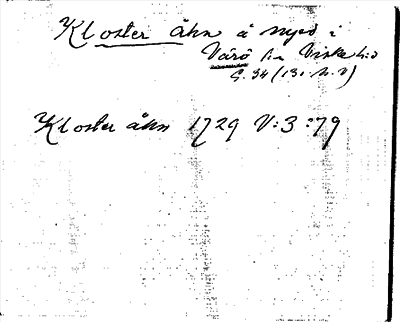 Kloster åhn å nyed i
Värö sn Viske h:d
G. 34 (13. N. V)
Kloster åhn 1729 V:3:79